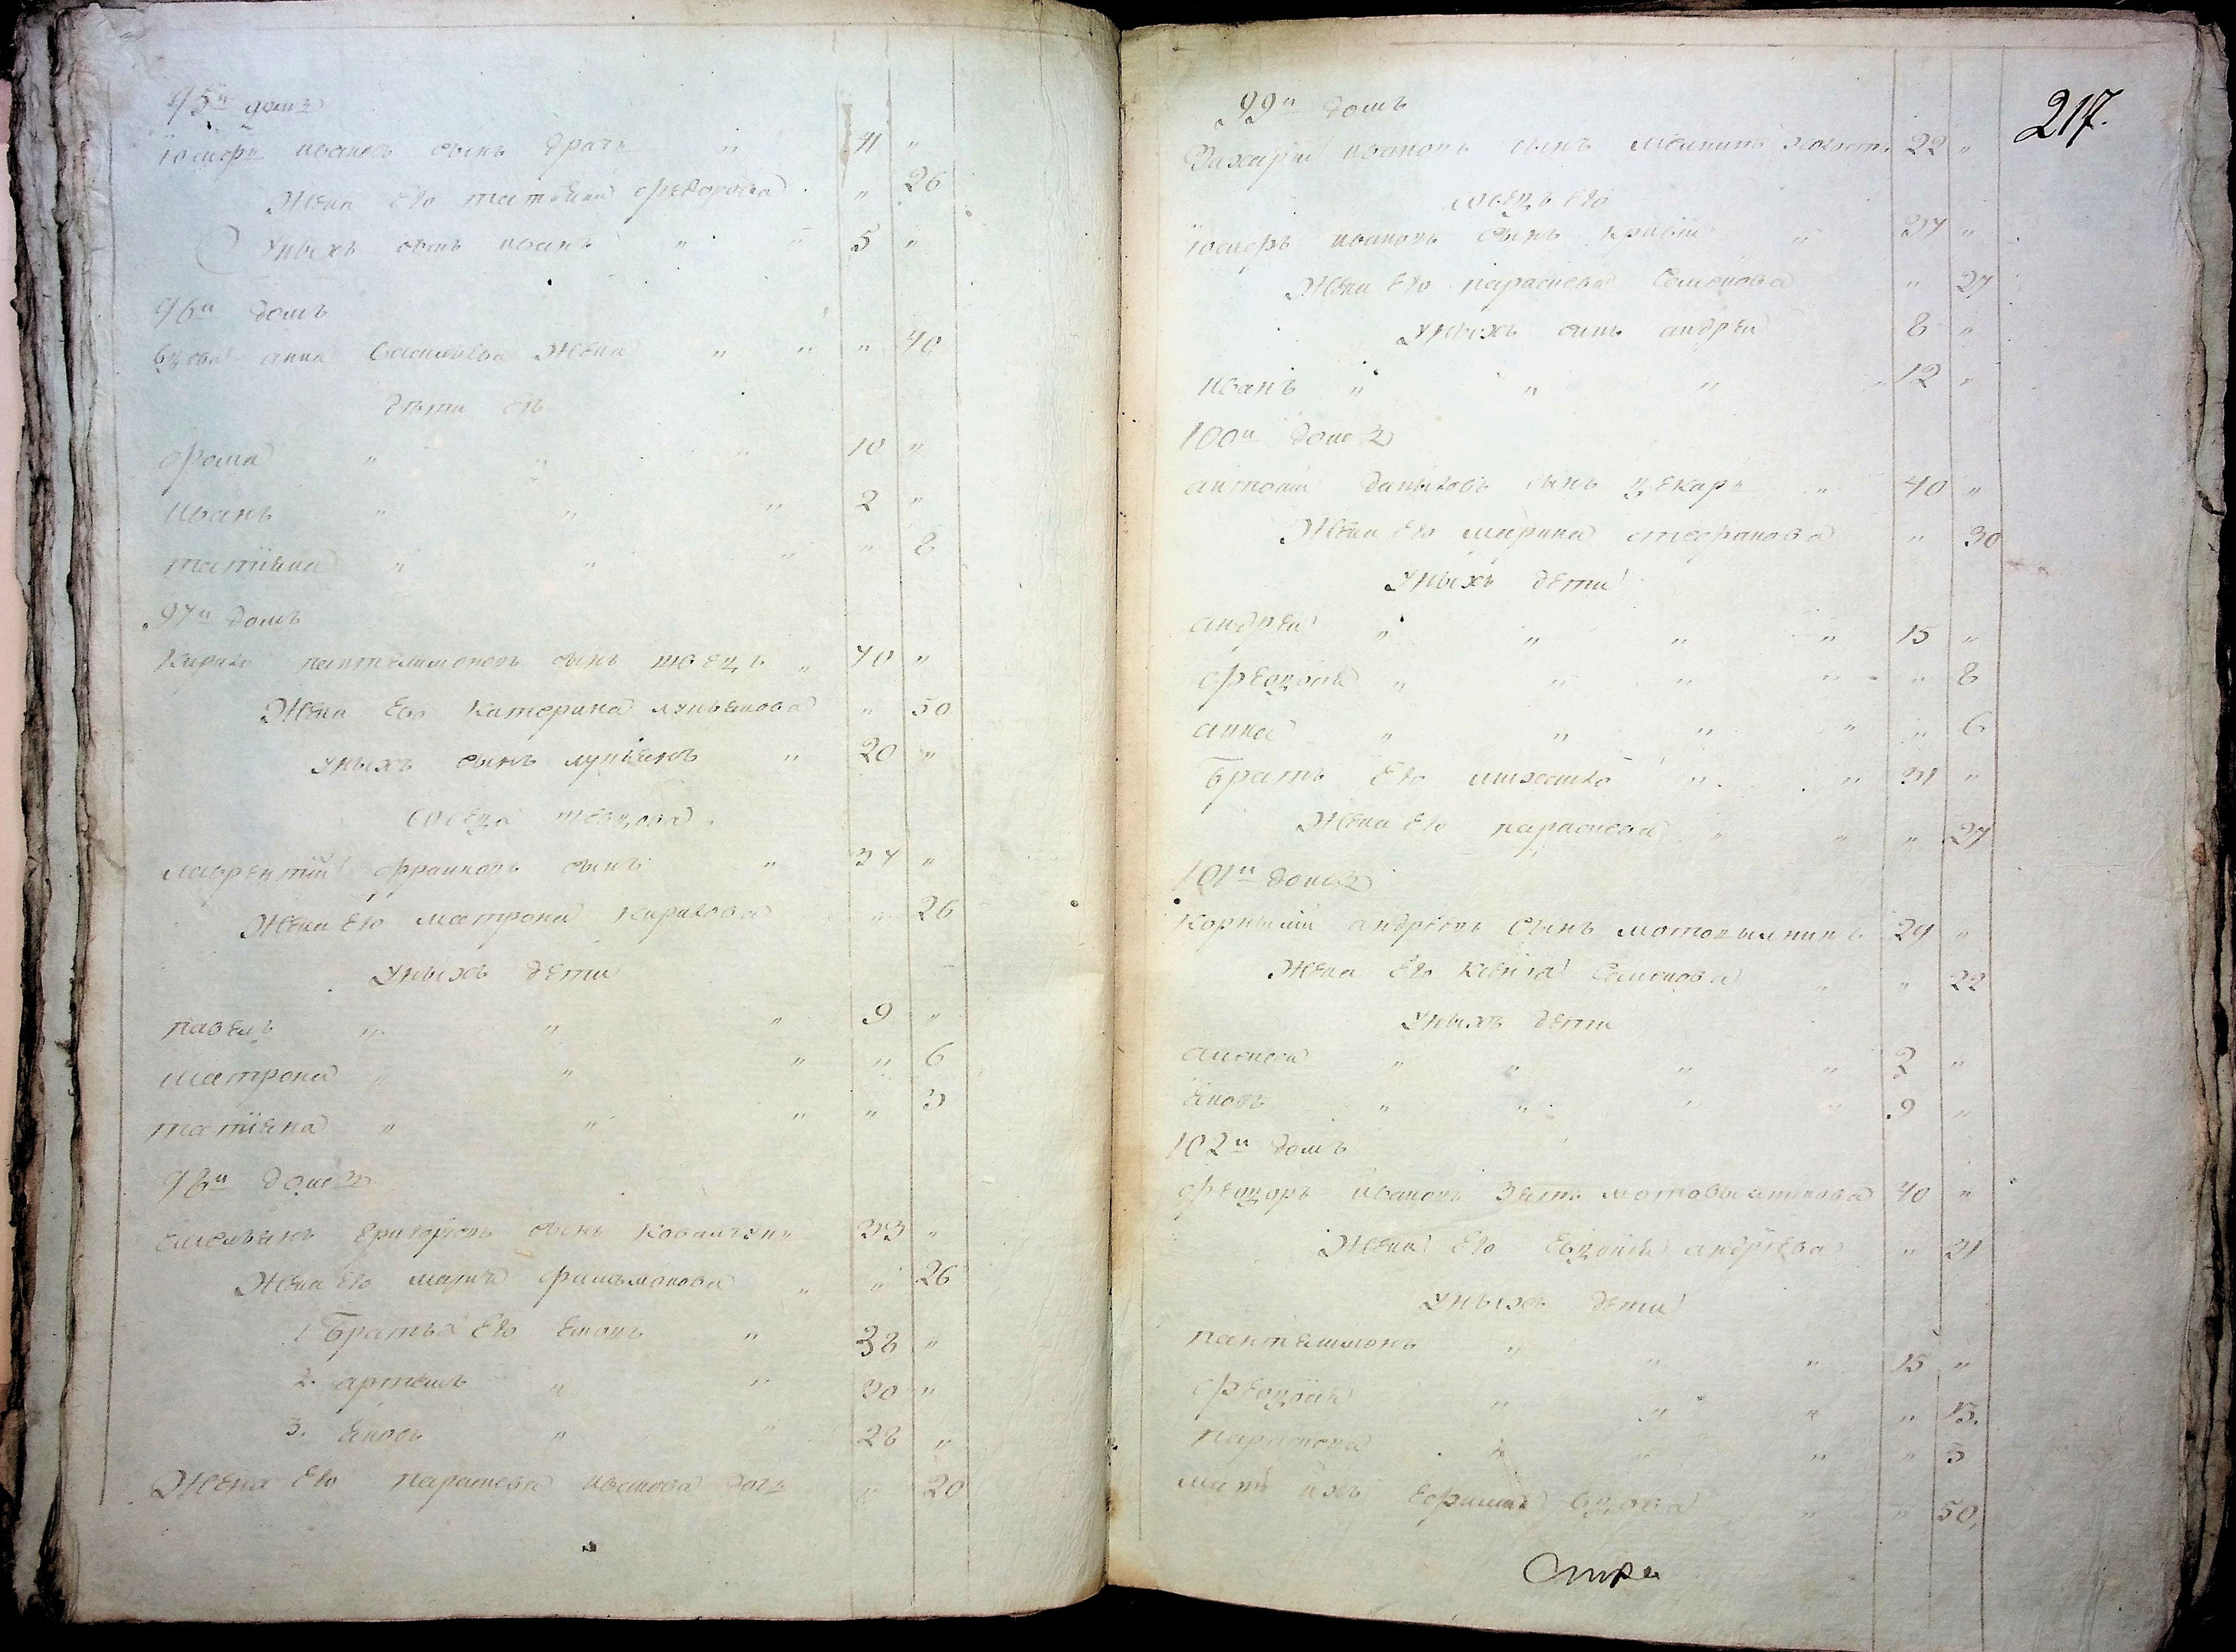 95й домъ
Юзефъ ивановъ сынъ драчъ " 41 "
Жена Его татіяна федорова " 26
Уныхъ сынъ иванъ " " 5 "
96й домъ
вдова анна Василіева Жена " " " 40
дѣти еѣ
фома " " " 10 "
иванъ " " " 2 "
татіяна " " " " 8
97й домъ
Кирило пантелимоновъ сынъ швецъ " 40 "
Жена Его Катерина лукъянова " 50
Уныхъ сынъ лукъянъ " 20 "
сосѣда шевцова
лаврентій франковъ сынъ " 34 "
Жена Его матрона Кирилова " 26
Уныхъ дѣти
павелъ " " " 9 "
матрона " " " " 6
татіяна " " " " 3
98й домъ
емелъянъ григоріевъ сынъ Ковалчукъ 33 "
Жена Его марія филимонова " " 26
1 Братья Его Яковъ " 38 "
2. артемъ " " 30 "
3. Яковъ " " 28 "
Жена Его параскева иванова дочь " 20
217.
99й домъ
Захарій ивановъ сынъ мелникъ холостъ 22 "
сосѣдъ его
Юзефъ ивановъ сынъ кривій " 37 "
Жена Его параскева Семенова " 27
Уныхъ сынъ андрей 8 "
иванъ " " " " 12 "
100й домъ
антоній даниловъ сынъ цекаръ " 40 "
Жена Его марина стефанова " 30
Уныхъ дѣти
андрей " " " " 15 "
федосія " " " " " 8
анна " " " " " 6
братъ Его михайло " " 31 "
Жена Его параскева " " " 27
101й домъ
Корнилій андрѣевъ Сынъ мотовилникъ 29 "
Жена Его Ксенія Семенова " " 22
Уныхъ дѣти
алексей " " " " 2 "
Яковъ " " " " 9 "
102й домъ
федоръ ивановъ Зять мотовилникова 40 "
Жена Его Евдокія андрѣева " 31
Уныхъ дѣти
пантелимонъ " " " 15 "
федосія " " " " 13.
параскева " " " " 3
мати ихъ Ефимія вдова " " 50.